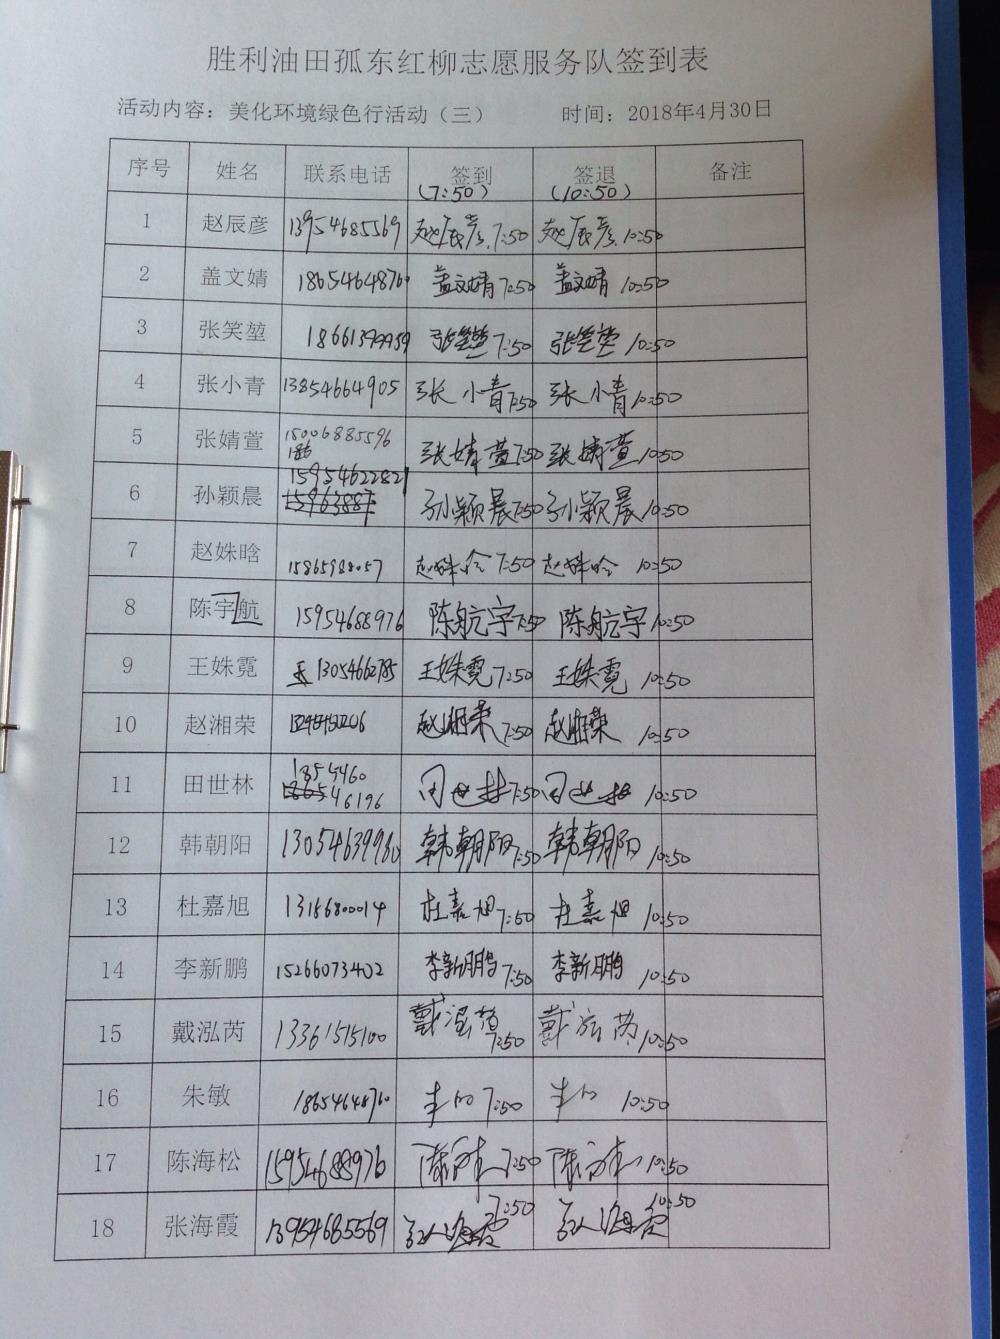 胜利油田孤东红柳志愿服务队签到表
活动内容：美化环境绿色行活动（三） 时间：2018年4月30日
序号 姓名 联系电话 签到 签退 备注
(7:50) (10:50)
1 赵辰彦 13954685569 赵辰彦 7:50 赵辰彦 10:50
2 盖文婧 18654648760 盖文婧 7:50 盖文婧 10:50
3 张笑堃 张笑堃 7:50 张笑堃 10:50
4 张小青 13854664905 张小青 7:50 张小青 10:50
5 张婧萱 15006885596 张婧萱 7:50 张婧萱 10:50
186
6 孙颖晨 15954622821 孙颖晨 7:50 孙颖晨 10:50
7 赵姝晗 赵姝晗 7:50 赵姝晗 10:50
8 陈宇航 15954688976 陈航宇 7:50 陈航宇 10:50
9 王姝霓 王姝霓 7:50 王姝霓 10:50
10 赵湘荣 赵湘荣 7:50 赵湘荣 10:50
11 田世林 1854460 田世林 7:50 田世林 10:50
46196
12 韩朝阳 13054639980 韩朝阳 7:50 韩朝阳 10:50
13 杜嘉旭 13156800014 杜嘉旭 7:50 杜嘉旭 10:50
14 李新鹏 15266073402 李新鹏 7:50 李新鹏 10:50
15 戴泓芮 13361515100 戴泓芮 7:50 戴泓芮 10:50
16 朱敏 18654648760 7:50 10:50
17 陈海松 15954688976 陈海松 7:50 陈海松 10:50
18 张海霞 13954685569 张海霞 7:50 张海霞 10:50